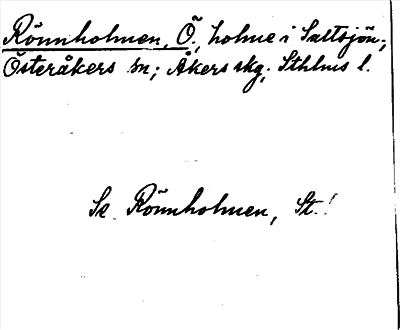 Rönnholmen, Ö., holme i Saltsjön;
Österåkers sn; Åkers skg, Sthlms l.
Se Rönnholmen, St.!